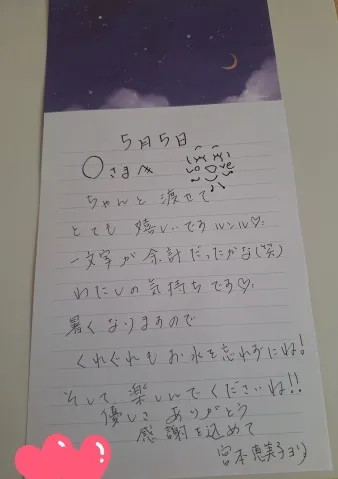 5月5日
〇さまへ
ちゃんと渡せて
とても嬉しいですルンルン♡
一文字が余計だったかな(笑)
わたしの気持ちです♡
暑くなりますので
くれぐれもお水を忘れずにね!
そして楽しんでくださいね!!
優しさありがとう
感謝を込めて
宮本恵美子より